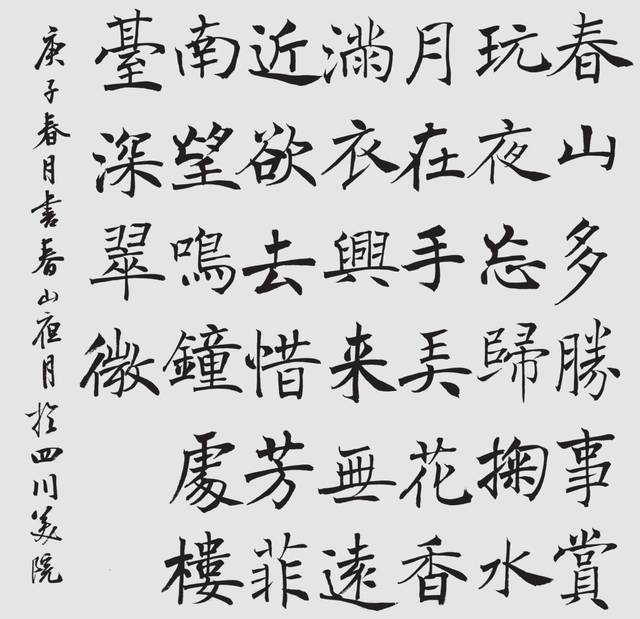 春山多勝事賞
玩夜忘歸掬水
月在手弄花香
滿衣興来無遠
近欲去惜芳菲
南望鳴鐘處樓
臺深翠微
庚子春月書春山夜月於四川美院